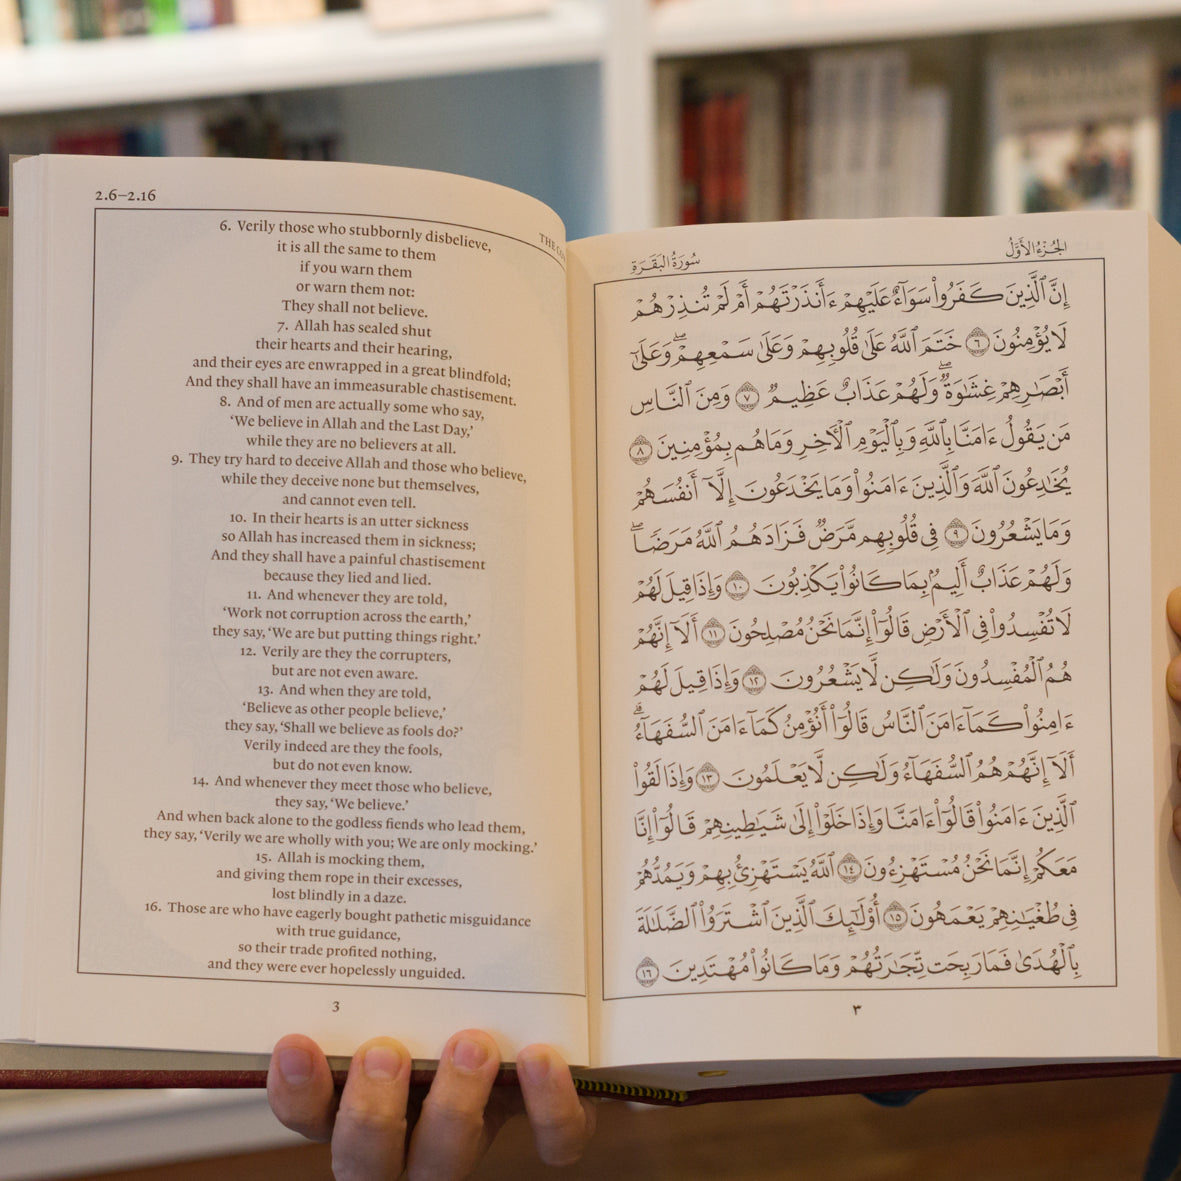 2.6–2.16
THE CO
6. Verily those who stubbornly disbelieve,
it is all the same to them
if you warn them
or warn them not:
They shall not believe.
7. Allah has sealed shut
their hearts and their hearing,
and their eyes are enwrapped in a great blindfold;
And they shall have an immeasurable chastisement.
8. And of men are actually some who say,
‘We believe in Allah and the Last Day,’
while they are no believers at all.
9. They try hard to deceive Allah and those who believe,
while they deceive none but themselves,
and cannot even tell.
10. In their hearts is an utter sickness
so Allah has increased them in sickness;
And they shall have a painful chastisement
because they lied and lied.
11. And whenever they are told,
‘Work not corruption across the earth,’
they say, ‘We are but putting things right.’
12. Verily are they the corrupters,
but are not even aware.
13. And when they are told,
‘Believe as other people believe,’
they say, ‘Shall we believe as fools do?’
Verily indeed are they the fools,
but do not even know.
14. And whenever they meet those who believe,
they say, ‘We believe.’
And when back alone to the godless fiends who lead them,
they say, ‘Verily we are wholly with you; We are only mocking.’
15. Allah is mocking them,
and giving them rope in their excesses,
lost blindly in a daze.
16. Those are who have eagerly bought pathetic misguidance
with true guidance,
so their trade profited nothing,
and they were ever hopelessly unguided.
3
الجُزْءُ الأَوَّلُ
سُورَةُ البَقَرَةِ
إِنَّ ٱلَّذِينَ كَفَرُوا۟ سَوَآءٌ عَلَيْهِمْ ءَأَنذَرْتَهُمْ أَمْ لَمْ تُنذِرْهُمْ
لَا يُؤْمِنُونَ ٦ خَتَمَ ٱللَّهُ عَلَىٰ قُلُوبِهِمْ وَعَلَىٰ سَمْعِهِمْ ۖ وَعَلَىٰٓ
أَبْصَـٰرِهِمْ غِشَـٰوَةٌ ۖ وَلَهُمْ عَذَابٌ عَظِيمٌ ٧ وَمِنَ ٱلنَّاسِ
مَن يَقُولُ ءَامَنَّا بِٱللَّهِ وَبِٱلْيَوْمِ ٱلْـَٔاخِرِ وَمَا هُم بِمُؤْمِنِينَ ٨
يُخَـٰدِعُونَ ٱللَّهَ وَٱلَّذِينَ ءَامَنُوا۟ وَمَا يَخْدَعُونَ إِلَّآ أَنفُسَهُمْ
وَمَا يَشْعُرُونَ ٩ فِى قُلُوبِهِم مَّرَضٌ فَزَادَهُمُ ٱللَّهُ مَرَضًا ۖ
وَلَهُمْ عَذَابٌ أَلِيمٌۢ بِمَا كَانُوا۟ يَكْذِبُونَ ١٠ وَإِذَا قِيلَ لَهُمْ
لَا تُفْسِدُوا۟ فِى ٱلْأَرْضِ قَالُوٓا۟ إِنَّمَا نَحْنُ مُصْلِحُونَ ١١ أَلَآ إِنَّهُمْ
هُمُ ٱلْمُفْسِدُونَ وَلَـٰكِن لَّا يَشْعُرُونَ ١٢ وَإِذَا قِيلَ لَهُمْ
ءَامِنُوا۟ كَمَآ ءَامَنَ ٱلنَّاسُ قَالُوٓا۟ أَنُؤْمِنُ كَمَآ ءَامَنَ ٱلسُّفَهَآءُ ۗ
أَلَآ إِنَّهُمْ هُمُ ٱلسُّفَهَآءُ وَلَـٰكِن لَّا يَعْلَمُونَ ١٣ وَإِذَا لَقُوا۟
ٱلَّذِينَ ءَامَنُوا۟ قَالُوٓا۟ ءَامَنَّا وَإِذَا خَلَوْا۟ إِلَىٰ شَيَـٰطِينِهِمْ قَالُوٓا۟ إِنَّا
مَعَكُمْ إِنَّمَا نَحْنُ مُسْتَهْزِءُونَ ١٤ ٱللَّهُ يَسْتَهْزِئُ بِهِمْ وَيَمُدُّهُمْ
فِى طُغْيَـٰنِهِمْ يَعْمَهُونَ ١٥ أُو۟لَـٰٓئِكَ ٱلَّذِينَ ٱشْتَرَوُا۟ ٱلضَّلَـٰلَةَ
بِٱلْهُدَىٰ فَمَا رَبِحَت تِّجَـٰرَتُهُمْ وَمَا كَانُوا۟ مُهْتَدِينَ ١٦
٣